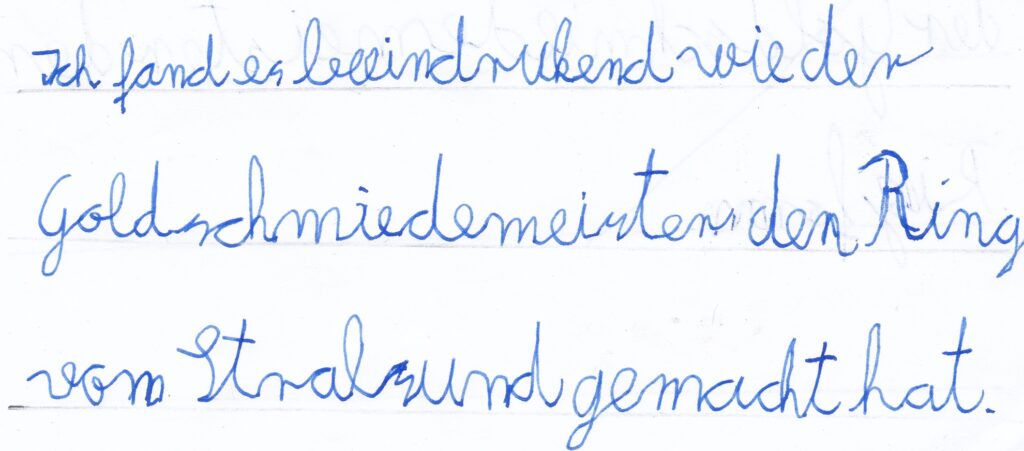 Ich fand es beeindrukend wie der
Goldschmiedemeister den Ring
vom Stralsund gemacht hat.